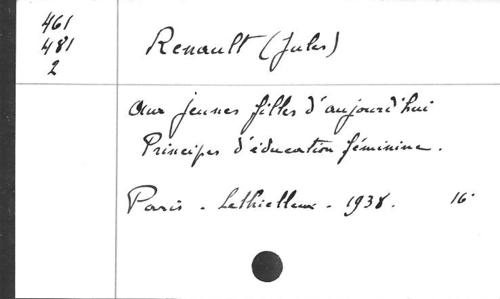 461
481
2
Renault (Jules)
Aux jeunes filles d'aujourd'hui
Principes d'éducation féminine.
Paris - Lethielleux - 1938. 16°